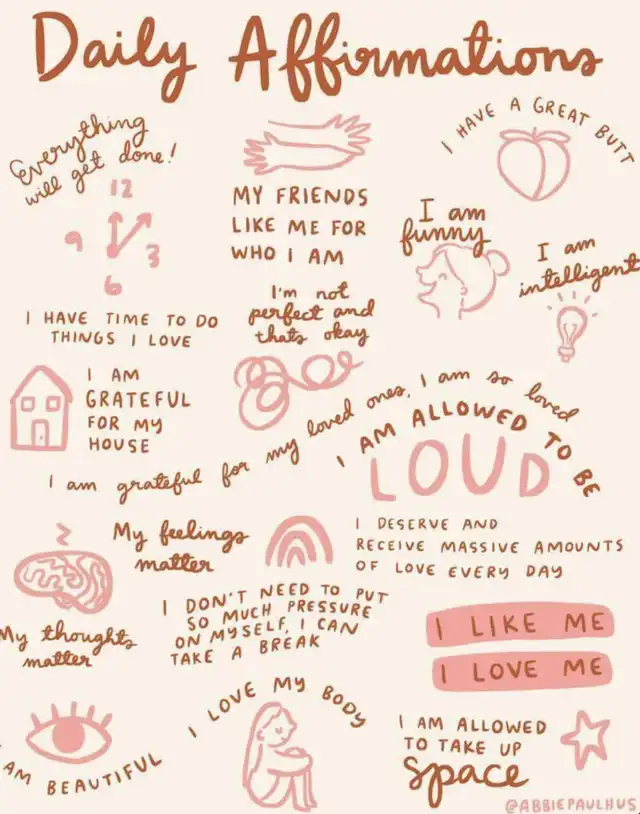 Daily Affirmations
Everything
will get done!
12
9
3
6
MY FRIENDS
LIKE ME FOR
WHO I AM
I HAVE A GREAT BUTT
I am
funny
I am
intelligent
I HAVE TIME TO DO
THINGS I LOVE
I'm not
perfect and
thats okay
I AM
GRATEFUL
FOR MY
HOUSE
I am grateful for my loved ones, I am so loved
I AM ALLOWED TO BE
LOUD
My feelings
matter
I DESERVE AND
RECEIVE MASSIVE AMOUNTS
OF LOVE EVERY DAY
My thoughts
matter
I DON'T NEED TO PUT
SO MUCH PRESSURE
ON MYSELF, I CAN
TAKE A BREAK
I LIKE ME
I LOVE ME
AM BEAUTIFUL
I LOVE MY BODY
I AM ALLOWED
TO TAKE UP
space
@ABBIEPAULHUS